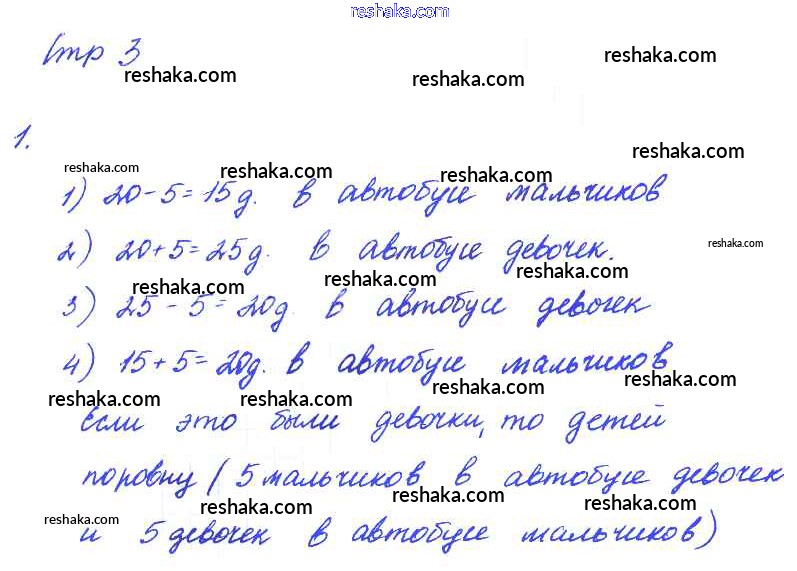 reshaka.com
Стр 3
reshaka.com
reshaka.com
reshaka.com
1.
reshaka.com
reshaka.com
reshaka.com
reshaka.com
1) 20-5=15д. в автобусе мальчиков
2) 20+5=25д. в автобусе девочек.
reshaka.com
reshaka.com
reshaka.com
reshaka.com
3) 25-5=20д. в автобусе девочек
4) 15+5=20д. в автобусе мальчиков
reshaka.com
reshaka.com
reshaka.com
reshaka.com
Если это были девочки, то детей
поровну (5 мальчиков в автобусе девочек
reshaka.com
reshaka.com
reshaka.com
reshaka.com
и 5 девочек в автобусе мальчиков)